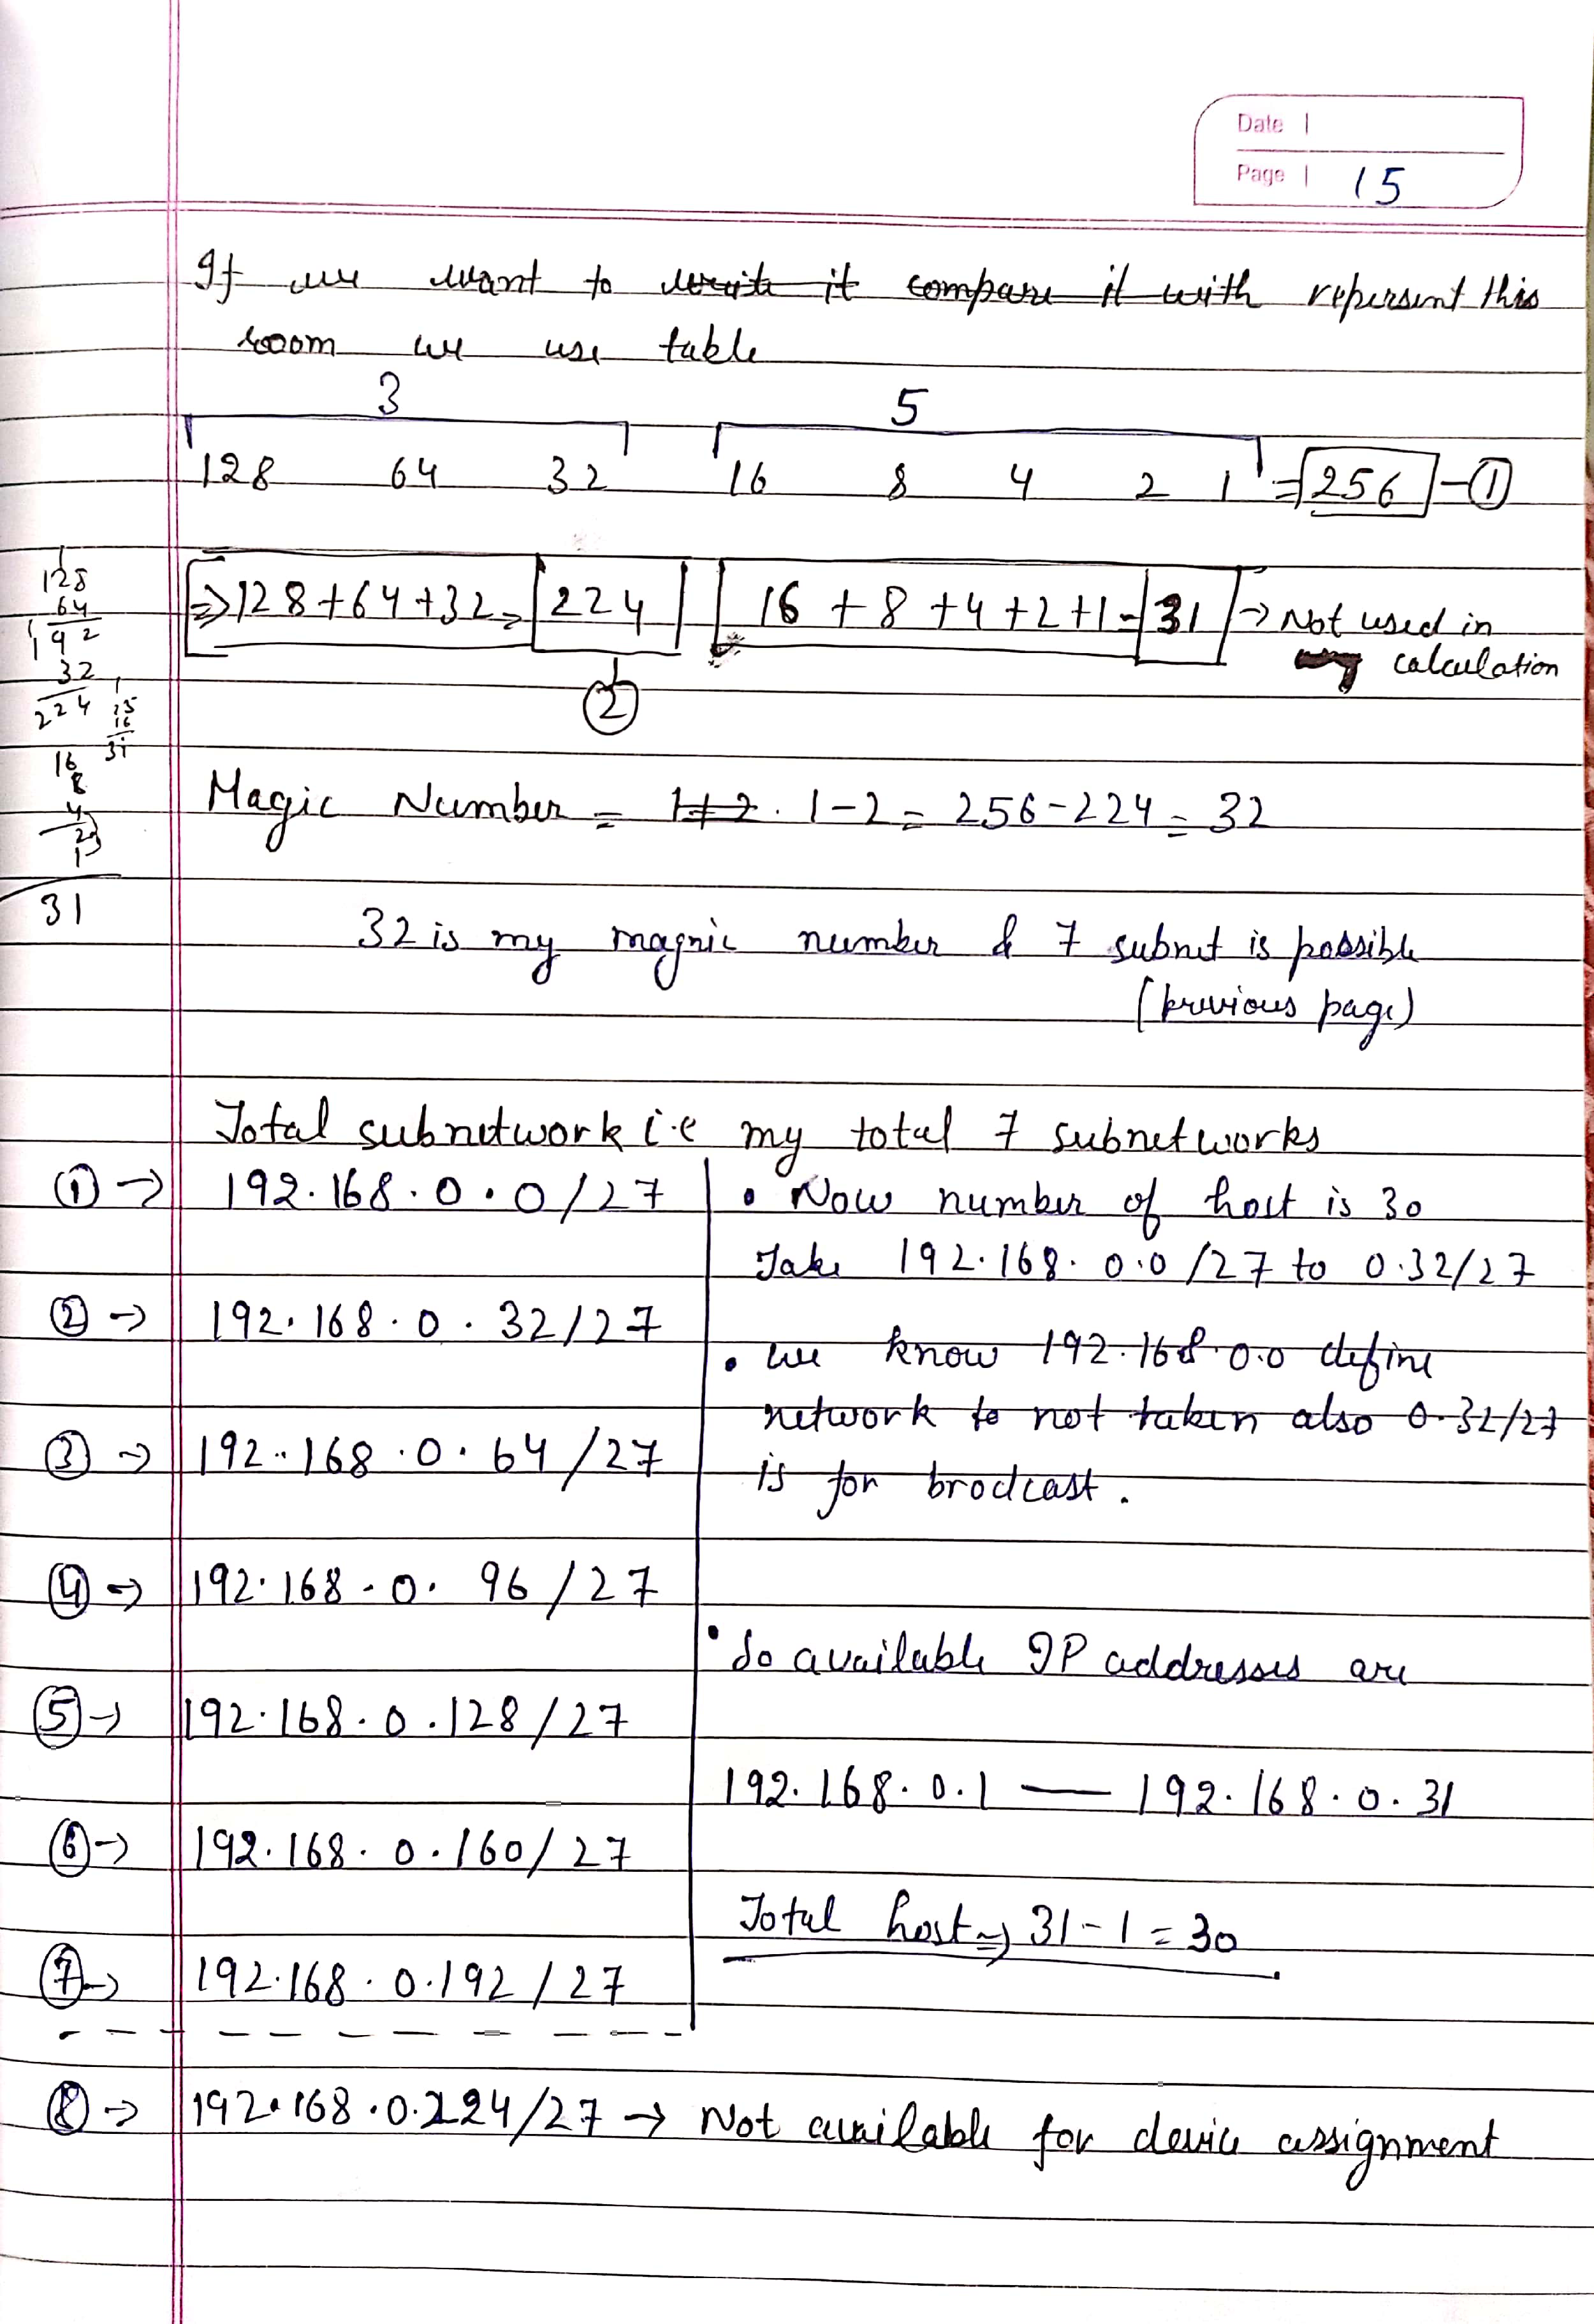 Date
Page 15
If we want to write it compare it with repersent this
room we use table
3 5
128 64 32 16 8 4 2 1 = 256 - ①
⇒ 128+64+32 = 224 16 + 8 + 4 + 2 + 1 = 31 → Not used in
calculation
②
128
64
192
32
224
15
16
31
16
8
4
2
1
31
Magic Number = 1+2. 1-2 = 256-224 = 32
32 is my magnic number & 7 subnet is possible
(previous page)
Total subnetwork i.e my total 7 subnetworks
① → 192.168.0.0/27
② → 192.168.0.32/27
③ → 192.168.0.64/27
④ → 192.168.0.96/27
⑤ → 192.168.0.128/27
⑥ → 192.168.0.160/27
⑦ → 192.168.0.192/27
• Now number of host is 30
Take 192.168.0.0/27 to 0.32/27
• we know 192.168.0.0 define
network to not taken also 0.32/27
is for brodcast.
• So available IP addresses are
192.168.0.1 — 192.168.0.31
Total host ⇒ 31-1 = 30
⑧ → 192.168.0.224/27 → Not available for device assignment